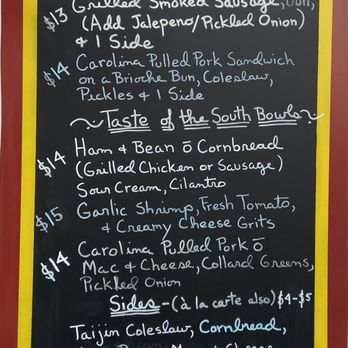 $13 Grilled Smoked Sausage, Bun,
(Add Jalepeno/Pickled Onion)
& 1 Side
$14 Carolina Pulled Pork Sandwich
on a Brioche Bun, Coleslaw,
Pickles & 1 Side
~Taste of the South Bowls~
$14 Ham & Bean ō Cornbread
(Grilled Chicken or Sausage)
Sour Cream, Cilantro
$15 Garlic Shrimp, Fresh Tomato,
& Creamy Cheese Grits
$14 Carolina Pulled Pork ō
Mac & Cheese, Collard Greens,
Pickled Onion
Sides-(à la carte also) $4-$5
Taijin Coleslaw, Cornbread,